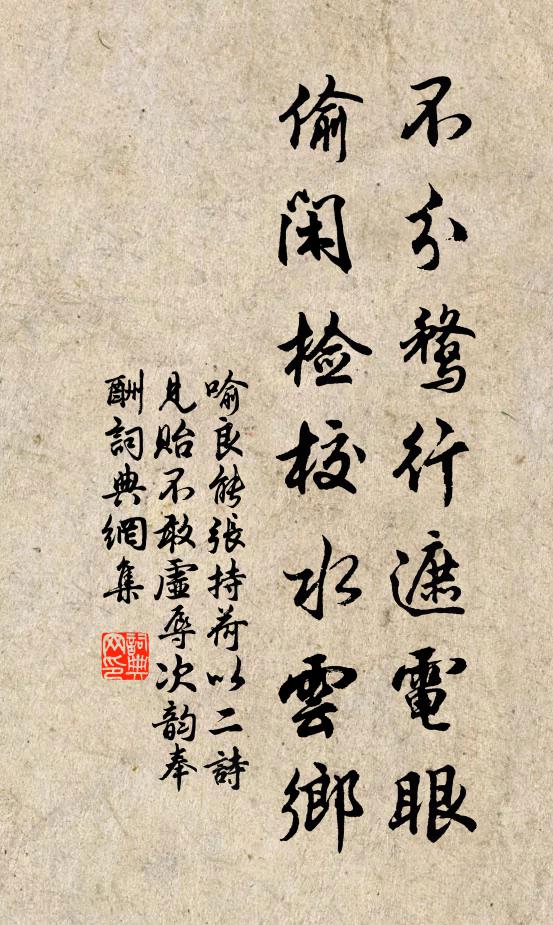 不分鶖行遮電眼
偷閑檢校水雲鄉
喻良能張持荷以二詩
見貽不敢虛辱次韵奉
酬詞典網集
詞典
网印